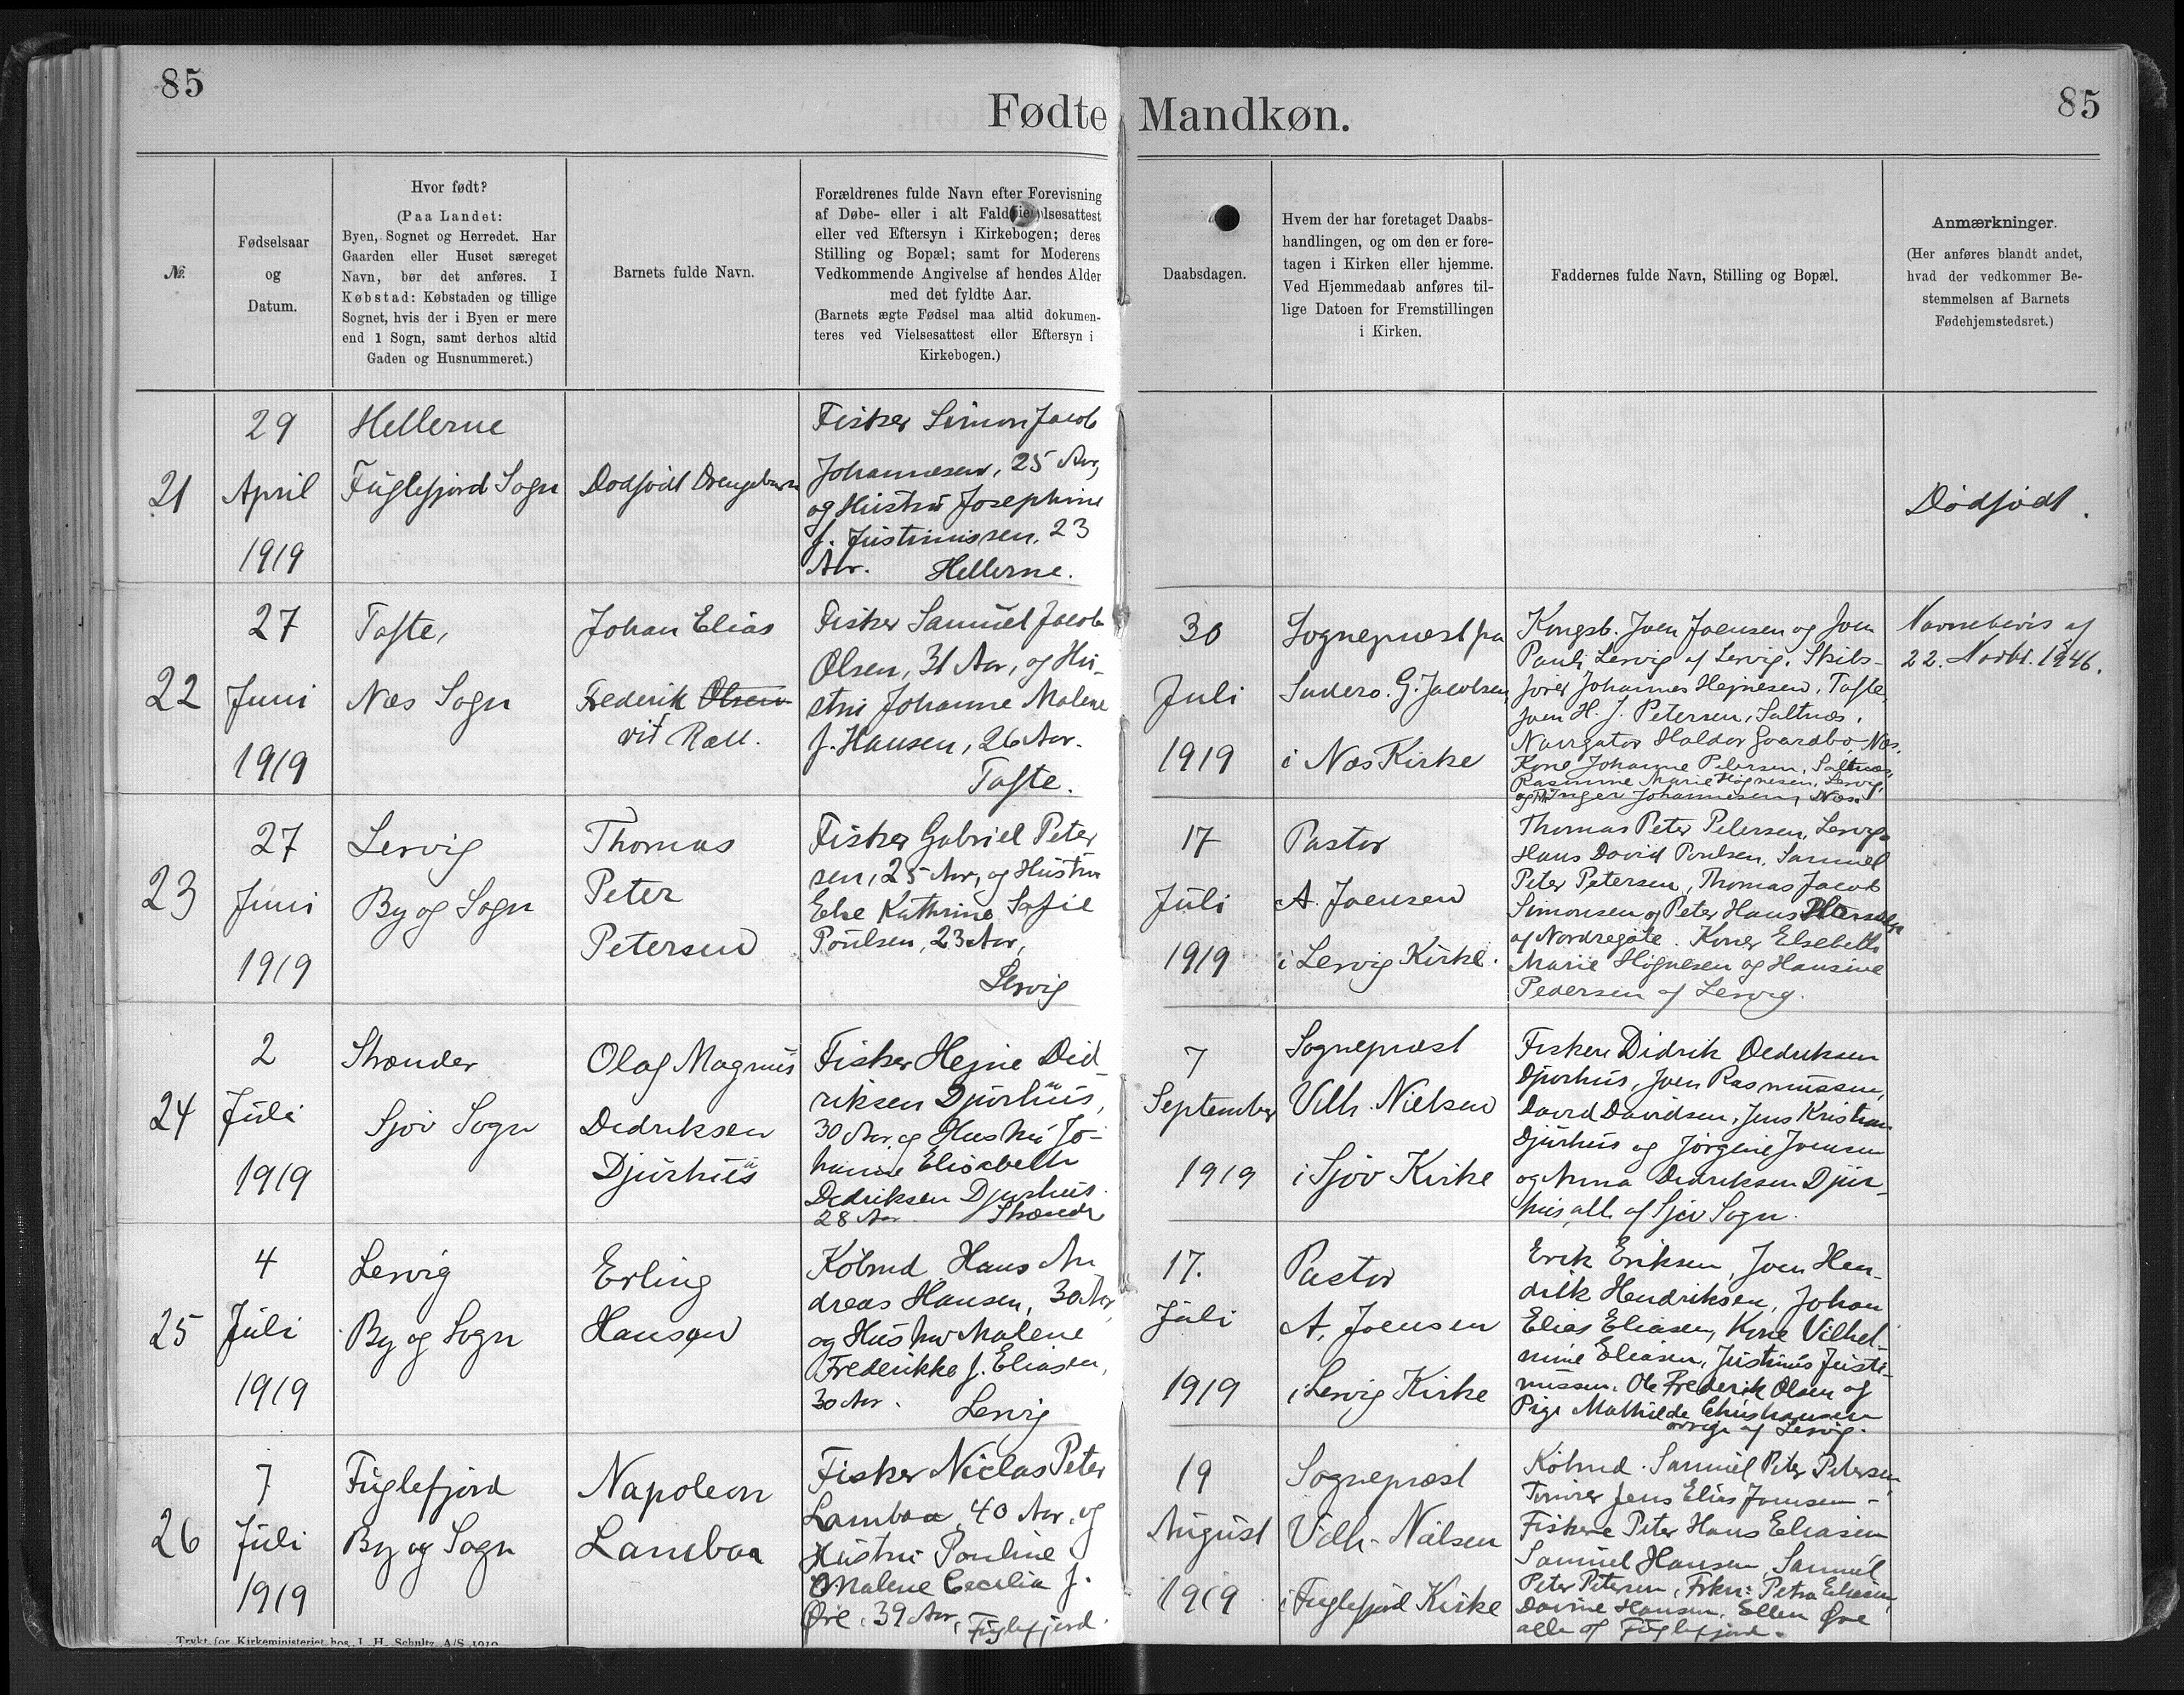 85
Fødte Mandkøn.
85
№.
Fødselsaar
og
Datum.
Hvor født?
(Paa Landet:
Byen, Sognet og Herredet. Har
Gaarden eller Huset særeget
Navn, bør det anføres. I
Købstad: Købstaden og tillige
Sognet, hvis der i Byen er mere
end 1 Sogn, samt derhos altid
Gaden og Husnummeret.)
Barnets fulde Navn.
Forældrenes fulde Navn efter Forevisning
af Døbe- eller i alt Fald
eller ved Eftersyn i Kirkebogen; deres
Stilling og Bopæl; samt for Moderens
Vedkommende Angivelse af hendes Alder
med det fyldte Aar.
(Barnets ægte Fødsel maa altid dokumen-
teres ved Vielsesattest eller Eftersyn i
Kirkebogen.)
Daabsdagen.
Hvem der har foretaget Daabs-
handlingen, og om den er fore-
tagen i Kirken eller hjemme.
Ved Hjemmedaab anføres til-
lige Datoen for Fremstillingen
i Kirken.
Faddernes fulde Navn, Stilling og Bopæl.
Anmærkninger.
(Her anføres blandt andet,
hvad der vedkommer Be-
stemmelsen af Barnets
Fødehjemstedsret.)
21
29
April
1919
Hellerne
Fuglefjord Sogn
Dødfødt Drengebarn
Fisker Simon Jacob
Johannesen, 25 Aar,
og Hustru Josephine
f. Justinussen, 23
Aar. Hellerne.
Dødfødt.
22
27
Juni
1919
Tofte,
Næs Sogn
Johan Elias
Frederik Olsen
Fisker Samuel Jacob
Olsen, 31 Aar, og Hu-
stru Johanne Malene
f. Hansen, 26 Aar.
Tofte.
30
Juli
1919
Sognepræst fra
Sudero. G. Jacobsen,
i Næs Kirke
Kongsb. Joen Joensen og Joen
Pauli Lervig af Lervig. Skibs-
fører Johannes Hejnesen, Tofte,
Joen H. J. Petersen, Saltnæs,
Navigatør Haldor Gaardbo, Næs.
Kone Johanne Petersen, Saltnæs,
Rasmine Marie Høgnesen, Lervig,
og Inger Johannesen, Næs.
Navnebevis af
22. Novbr. 1946.
23
27
Juni
1919
Lervig
By og Sogn
Thomas
Peter
Petersen
Fisker Gabriel Peter
sen, 25 Aar, og Hustru
Else Kathrine Sofie
Poulsen, 23 Aar,
Lervig
17
Juli
1919
Pastor
A. Joensen
i Lervig Kirke.
Thomas Peter Petersen, Lervig.
Hans David Poulsen, Samuel
Peter Petersen, Thomas Jacob
Simonsen og Peter Hans
af Nordregøte. Koner Elsebeth
Marie Høgnesen og Hansine
Pedersen af Lervig.
24
2
Juli
1919
Strænder
Sjov Sogn
Olaf Magnus
Didriksen
Djurhuus
Fisker Hejne Did-
riksen Djurhuus,
30 Aar og Hustru Jo-
hanne Elisabeth
Didriksen Djurhuus.
28 Aar. Strænder
7
September
1919
Sognepræst
Vilh. Nielsen
i Sjov Kirke
Fiskere Didrik Dedriksen
Djurhuus, Joen Rasmussen,
David Davidsen, Jens Kristian
Djurhuus og Jørgine Joensen
og Anna Didriksen Djur-
huus, alle af Sjov Sogn.
25
4
Juli
1919
Lervig
By og Sogn
Erling
Hansen
Købmd Hans An
dreas Hansen, 30 Aar,
og Hustru Malene
Frederikke f. Eliasen,
30 Aar. Lervig
17.
Juli
1919
Pastor
A. Joensen
i Lervig Kirke
Erik Eriksen, Joen Hen-
drik Hendriksen, Johan
Elias Eliasen, Kone Vilhel-
mine Eliasen, Justinus Justi-
nussen. Ole Frederik Olsen og
Pige Mathilde Christiansen
af Lervig.
26
7
Juli
1919
Fuglefjord
By og Sogn
Napoleon
Lambaa
Fisker Niclas Peter
Lambaa, 40 Aar, og
Hustru Pouline
Malene Cecilia f.
Øre, 39 Aar, Fuglefjord.
19
August
1919
Sognepræst
Vilh. Nielsen
i Fuglefjord Kirke
Købmd. Samuel Peter Petersen,
Tømrer Jens Elias Joensen -
Fiskere Peter Hans Eliasen
Samuel Hansen, Samuel
Peter Petersen, Petra Eliasen,
Davine Hansen, Ellen Øre
alle af Fuglefjord.
Trykt for Kirkeministeriet hos J. H. Schultz A/S 1919